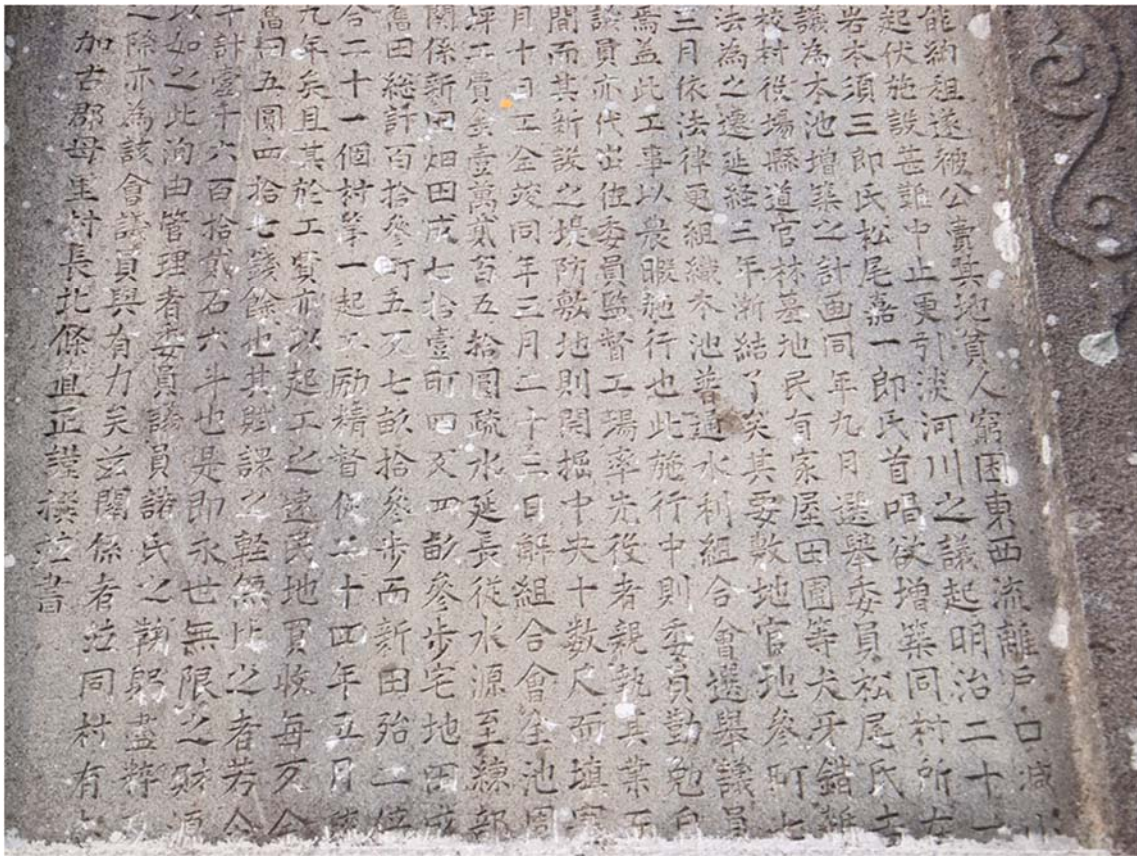 能納租遂被公賣其地貧人窮困東西流離戸口減
起伏施設甚難中止更引淡河川之議起明治二十一
岩本須三郎氏松尾嘉一郎氏首唱欲增築同村所在
議為本池增築之計画同年九月選舉委員松尾氏
校村役場縣道官林墓地民有家屋田圃等犬牙錯雜
法為之遷延経三年漸結了矣其要敷地官地參町七
三月依法律更組織本池普通水利組合會選舉議員
焉益此工事以農暇施行也此施行中則委員勤勉自
議員亦代出徃委員監督工場率先役者親執其業而
間而其新設之堤防敷地則開掘中央十数尺而填
月十日工金竣同年三月二十三日解組合會全池周
坪工費金壹萬貳百五拾圓疏水延長従水源至練部
関係新田畑田成七拾壹町四反四畝參歩宅地田成
舊田総計百拾參町五反七畝拾參歩而新田殆二倍
合二十一個村挙一起工励精督促二十四年五月
九年矣且其於工實亦以起工之速民地買收每反金
舊田五圓四拾七錢餘也其賦課之軽無比之者若合
計壹千六百拾貳石六斗也是即永世無限之財源
以如之此洵由管理者委員議員諸氏之鞠躬盡粹
之除亦為該會議員與有力矣茲関係者並同村有
加古郡母里村長北條直正謹撰並書